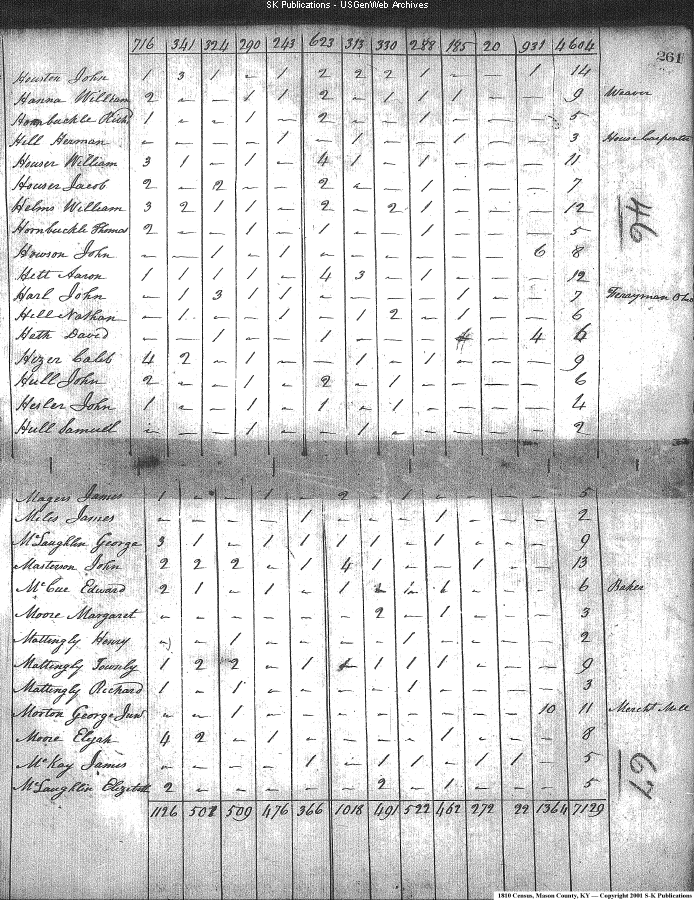 SK Publications - USGenWeb Archives
716 341 324 290 243 623 313 330 288 185 20 931 4604
261
Houston John 1 3 1 - 1 2 2 2 1 - - 1 14
Hanna William 2 - - 1 1 2 - 1 1 1 - - 9 Weaver
Hornbuckle Richd 1 - - 1 - 2 - - 1 - - - 5
Hill Herman - - - - 1 - 1 - - 1 - - 3 House Carpenter
Houser William 3 1 - 1 - 4 1 - 1 - - - 11
Houser Jacob 2 - 2 - - 2 - - 1 - - - 7
Helms William 3 2 1 1 - 2 - 2 1 - - - 12
46
Hornbuckle Thomas 2 - - 1 - 1 - - 1 - - - 5
Howson John - - 1 - 1 - - - - - - 6 8
Hett Aaron 1 1 1 1 - 4 3 - 1 - - - 12
Harl John - 1 3 1 1 - - - - 1 - - 7 Ferryman Ohio
Hill Nathan - 1 - - 1 - 1 2 - 1 - - 6
Heth David - - 1 - - 1 - - - - 4 6
Hizer Caleb 4 2 - 1 - - 1 - 1 - - - 9
Hull John 2 - - 1 - 2 - 1 - - - - 6
Hesler John 1 - - 1 - 1 - 1 - - - - 4
Hull Samuel - - - 1 - - 1 - - - - - 2
Magers James 1 - - 1 - 2 - 1 - - - - 5
Miles James - - - - 1 - - - 1 - - - 2
McLaughlin George 3 1 - 1 1 1 1 - 1 - - - 9
Masterson John 2 2 2 - 1 4 1 - - 1 - - 13
McCue Edward 2 1 - 1 - 1 - - 6 Baker
Moore Margaret - - - - - - 2 - 1 - - - 3
Mattingly Henry - - 1 - - - - 1 - - - - 2
Mattingly Townly 1 2 2 - 1 1 1 1 - - - 9
Mattingly Richard 1 - 1 - - - - 1 - - - - 3
Morton George Junr - - 1 - - - - - - - - 10 11 Mercht Mill
Moore Elijah 4 2 - 1 - - - - 1 - - - 8
McKay James - - - - 1 - 1 1 1 - 1 - 5
67
McLaughlin Elizabeth 2 - - - - - 2 - 1 - - - 5
1126 507 509 476 366 1018 491 522 462 272 22 1364 7129
1810 Census, Mason County, KY — Copyright 2001 S-K Publications